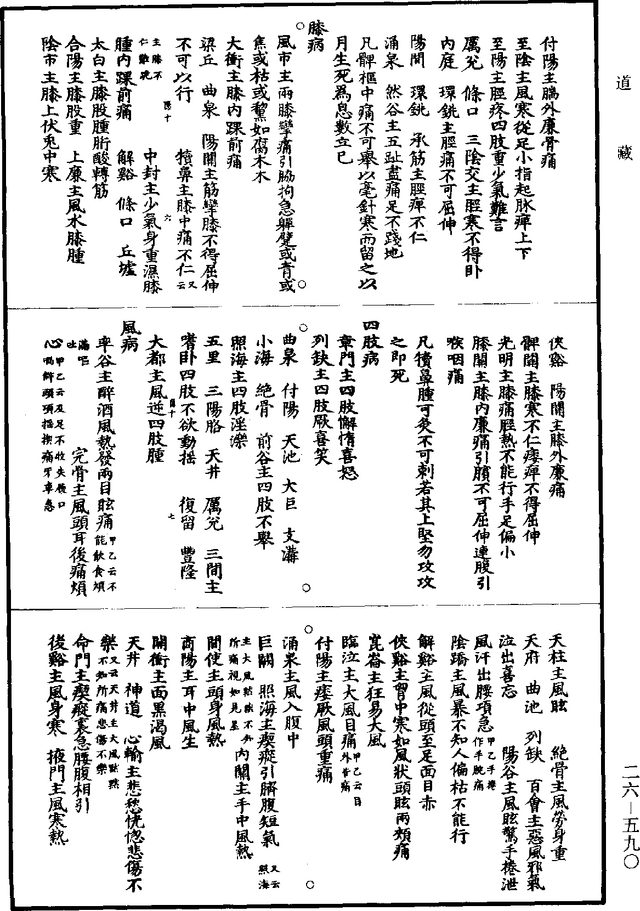 道藏
付陽主腨外廉骨痛
至陰主風寒從足小指起脉痺上下
至陽主脛疼四肢重少氣難言
厲兊　條口　三陰交主脛寒不得卧
内庭　環銚主脛痛不可屈伸
陽間　環銚　承筋主脛痺不仁
涌泉　然谷主五趾盡痛足不踐地
凡髀樞中痛不可舉以毫針寒而留之以
月生死爲息數立已
膝病
風市主兩膝攣痛引脇拘急軃躄或青或
焦或枯或黧如腐木木
大衝主膝内踝前痛
梁丘　曲泉　陽關主筋攣膝不得屈伸
不可以行　犢鼻主膝中痛不仁又云
主膝不仁難跪　中封主少氣身重濕膝
腫内踝前痛　解谿　條口　丘墟
太白主膝股腫胻酸轉筋
合陽主膝股重　上廉主風水膝腫
陰市主膝上伏兎中寒
陽十　六
俠谿　陽關主膝外廉痛
髀關主膝寒不仁痿痺不得屈伸
光明主膝痛脛熱不能行手足偏小
膝關主膝内廉痛引臏不可屈伸連腹引
喉咽痛
凡犢鼻腫可灸不可刺若其上堅勿攻攻
之即死
四肢病
章門主四肢懈惰喜怒
列缺主四肢厥喜笑
曲泉　付陽　天池　大巨　支溝
小海　絶骨　前谷主四肢不舉
照海主四肢淫濼
五里　三陽胳　天井　厲兊　三間主
嗜卧四肢不欲動摇　復留　豐隆
大都主風逆四肢腫
陽十　七
風病
率谷主醉酒風熱發兩目眩痛甲乙云不能飲食煩
滿嘔吐　完骨主風頭耳後痛煩
心甲乙云及足不收失履口喎僻頭項摇瘈痛牙車急
天柱主風眩　絶骨主風勞身重
天府　曲池　列缺　百會主惡風邪氣
泣出喜忘　陽谷主風眩驚手捲泄
風汗出腰項急甲乙手捲作手腕痛
陰蹻主風暴不知人偏枯不能行
解谿主風從頭至足面目赤
俠谿主胷中寒如風狀頭眩兩頰痛
崑崙主狂易大風
臨泣主大風目痛甲乙云目外眥痛
付陽主痿厥風頭重痛
涌泉主風入腹中
巨闕　照海主瘈瘲引臍腹短氣又云照海
主大風默默不知所痛視如見星　内關主手中風熱
間使主頭身風熱
商陽主耳中風生
關衝主面黒渴風
天井　神道　心輸主悲愁恍惚悲傷不
樂又云天井主大風默默不知所痛悲傷不樂
命門主瘈瘲裏急腰腹相引
後谿主風身寒　掖門主風寒熱
二六—五九〇